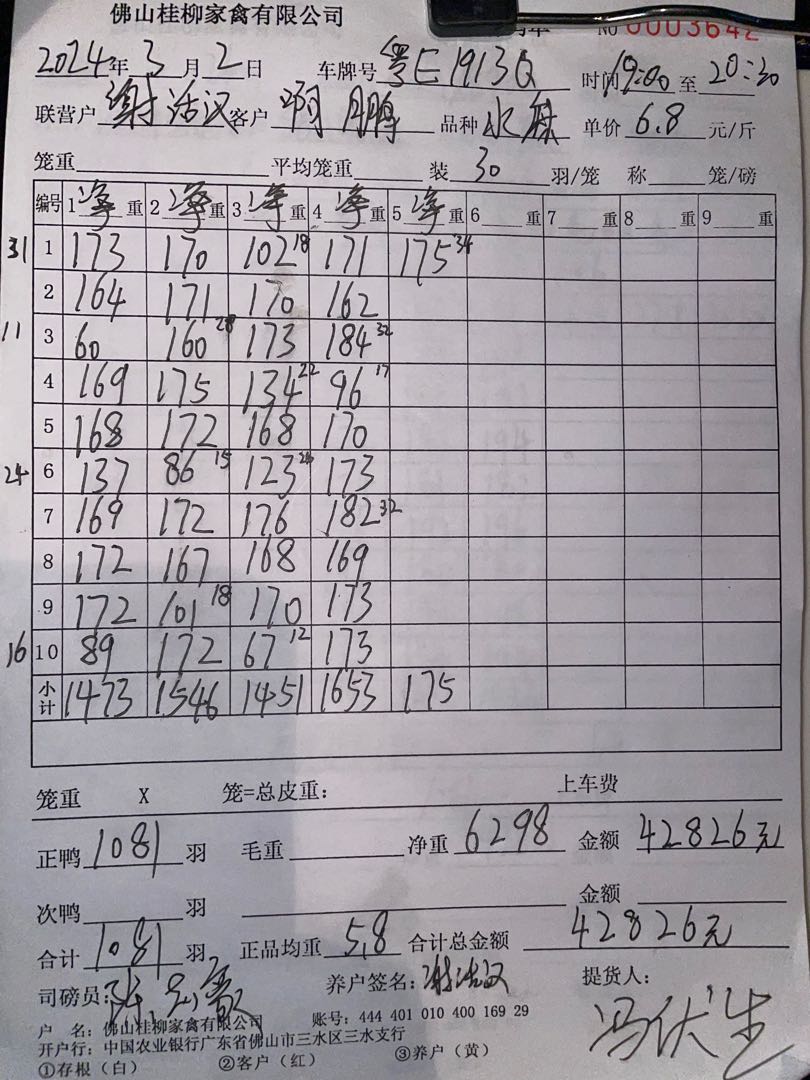 佛山桂柳家禽有限公司
单 No 0003642
2024年3月2日 车牌号 粤E1913Q 时间19:00至20:30
联营户 谢活汉 客户 阿鹏 品种 水麻 单价 6.8 元/斤
笼重 平均笼重 装 30 羽/笼 称 笼/磅
编号 1 净重 2 净重 3 净重 4 净重 5 净重 6 重 7 重 8 重 9 重
31 1 173 170 102 18 171 175 34
2 164 171 170 162
11 3 60 160 28 173 184 32
4 169 175 134 22 96 17
5 168 172 168 170
24 6 137 86 15 123 173
7 169 172 176 182 32
8 172 167 168 169
9 172 101 18 170 173
16 10 89 172 67 12 173
小计 1473 1546 1451 1653 175
笼重 X 笼=总皮重: 上车费
正鸭 1081 羽 毛重 净重 6298 金额 42826元
次鸭 羽 金额
合计 1081 羽 正品均重 5.8 合计总金额 42826元
司磅员: 养户签名: 谢活汉 提货人:
冯伏生
户 名: 佛山桂柳家禽有限公司 账号: 444 401 010 400 169 29
开户行: 中国农业银行广东省佛山市三水区三水支行
①存根(白) ②客户(红) ③养户(黄)